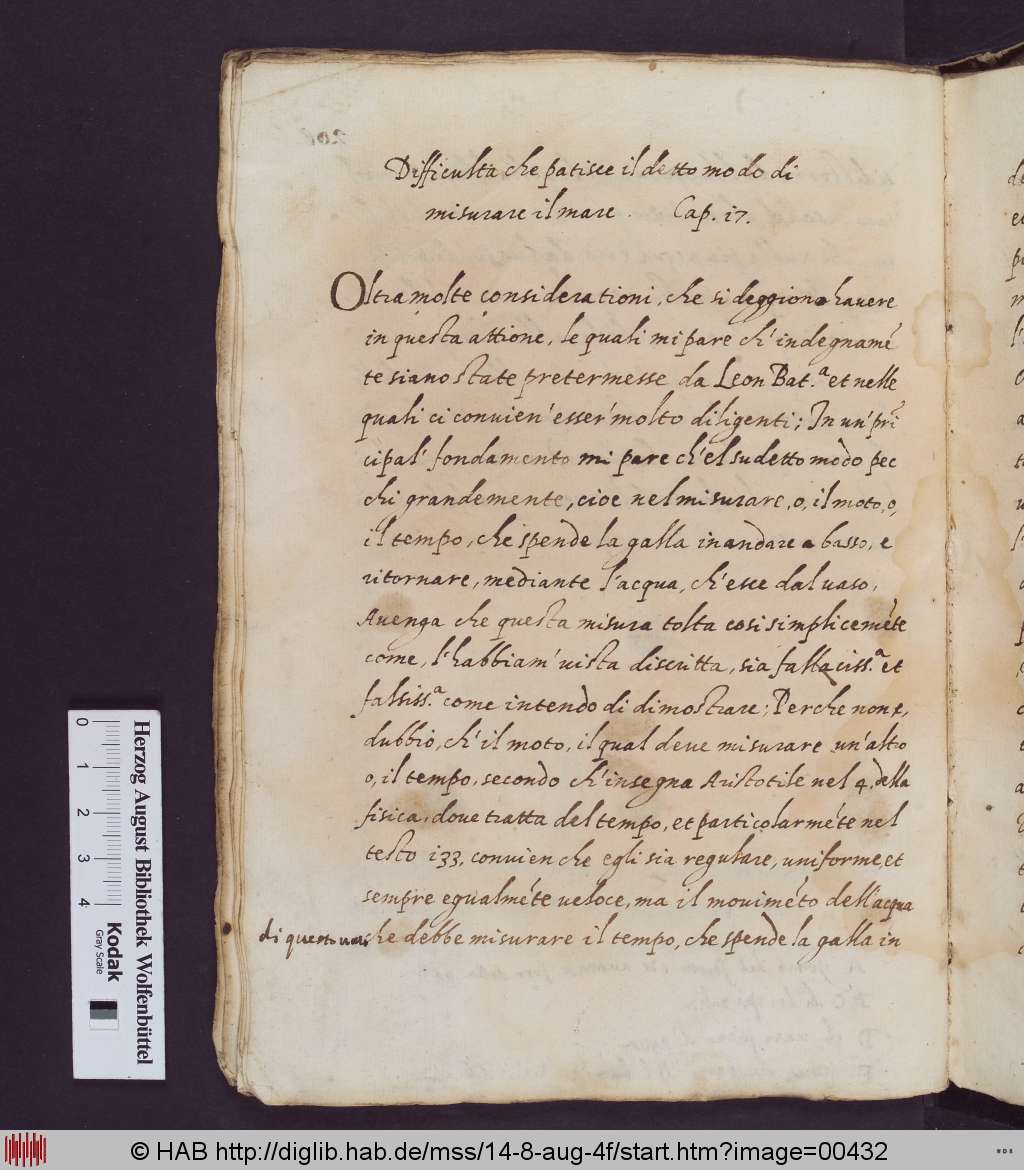 Difficulta che patisce il detto modo di
misurare il mare. Cap. 17.
Oltra molte considerationi, che si deggiono havere
in questa attione, le quali mi pare ch' indegnamē
te siano state pretermesse da Leon Bat.ª et nelle
quali ci convien' esser' molto diligenti; In un' prī
cipal' fondamento mi pare ch' el sudetto modo pec
chi grandemente, cioe nel misurare, o, il moto, o,
il tempo, che spende la galla in andare a basso, e
ritornare, mediante l'acqua, ch' esce dal vaso,
Avenga che questa misura tolta cosi simplicemēte
come, l' habbiam' vista discritta, sia fallaciss.ª et
falsiss.ª come intendo di dimostrare; Perche non e,
dubbio, ch' il moto, il qual deve misurare un' altro
o, il tempo, secondo ch' insegna Aristotile nel 4. della
fisica, dove tratta del tempo, et particolarmēte nel
testo 133, convien che egli sia regulare, uniforme, et
sempre egualmēte veloce, ma il movimēto dell' acqua
di questo vaso che debbe misurare il tempo, che spende la galla in
0 1 2 3 4
Herzog August Bibliothek Wolfenbüttel
Kodak
Gray Scale
© HAB http://diglib.hab.de/mss/14-8-aug-4f/start.htm?image=00432